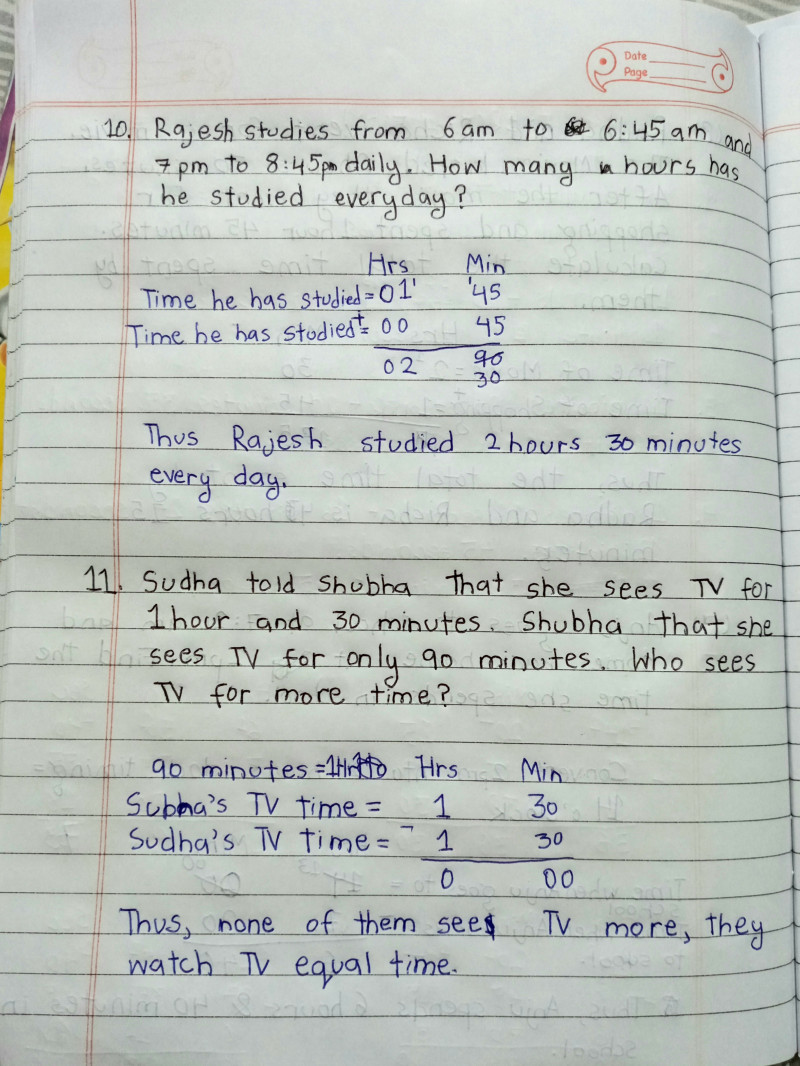 Date
Page
10. Rajesh studies from 6 am to 6:45 am and
7 pm to 8:45pm daily. How many hours has
he studied everyday?
Hrs Min
Time he has studied = 01 45
Time he has studied += 00 45
02 90
30
Thus Rajesh studied 2 hours 30 minutes
every day.
11. Sudha told Shubha that she sees TV for
1 hour and 30 minutes. Shubha that she
sees TV for only 90 minutes. Who sees
TV for more time?
90 minutes = Hrs Min
Subha's TV time = 1 30
Sudha's TV time = - 1 30
0 00
Thus, none of them see TV more, they
watch TV equal time.